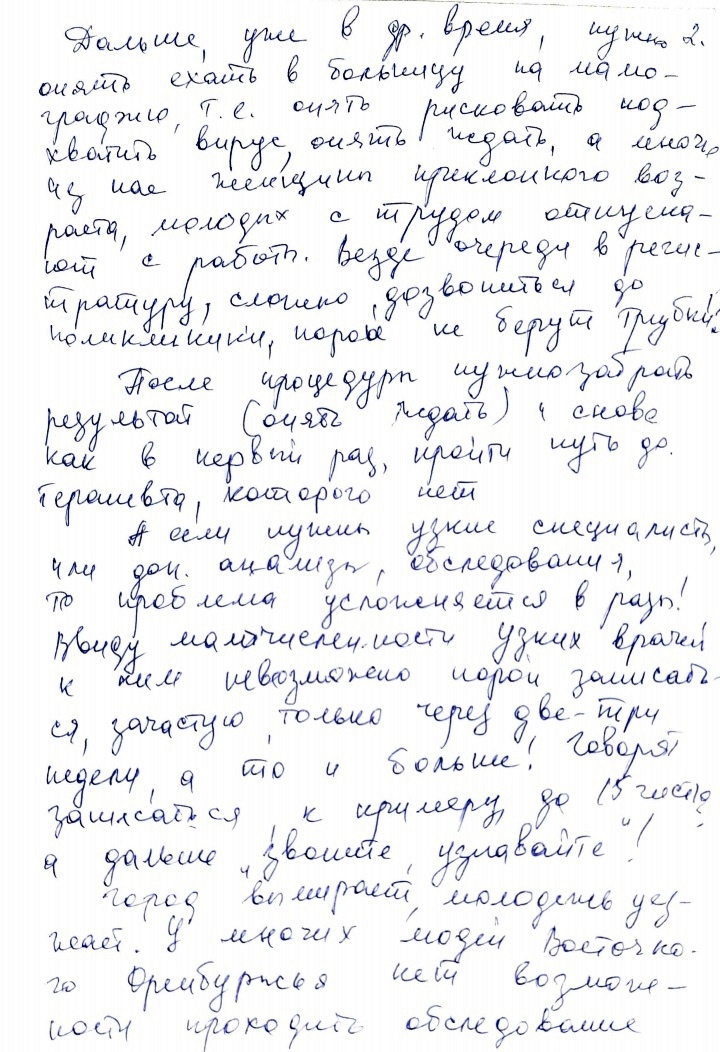 Дальше, уже в др. время, нужно 2.
опять ехать в больницу на мамо-
графию, т.е. опять рисковать под-
хватить вирус, опять ждать, а многие
из нас женщины преклонного воз-
раста, молодых с трудом отпуска-
ют с работы. Везде очереди в регис-
тратуру, сложно дозвониться до
поликлиники, порой не берут трубки!
После процедуры нужно забрать
результат (опять ждать) и снова
как в первый раз, пройти путь до
терапевта, которого нет
А если нужны узкие специалисты,
или доп. анализы, обследования,
то проблема усложняется в разы!
Ввиду малочисленности узких врачей
к ним невозможно порой записать-
ся, зачастую только через две-три
недели, а то и больше! Говорят
записаться, к примеру, до 15 числа,
а дальше "звоните, узнавайте"!
Город вымирает, молодежь уез-
жает. У многих людей Восточно-
го Оренбуржья нет возмож-
ности проходить обследование